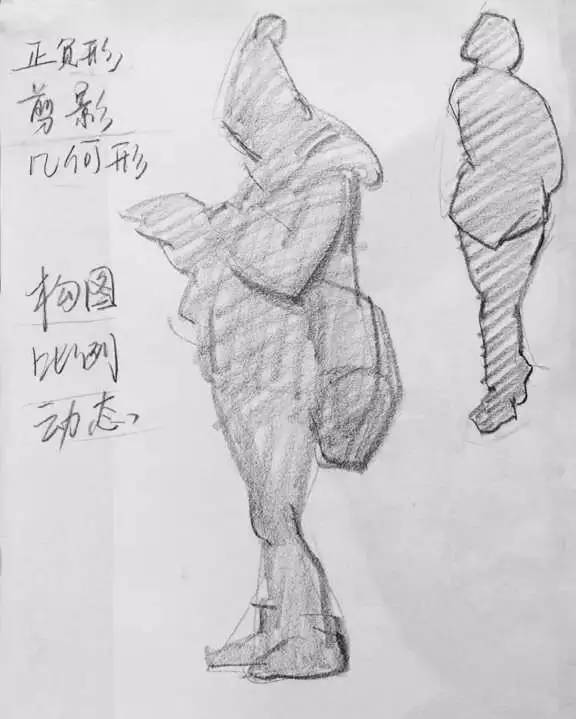 正负形
剪影
几何形
构图
比例
动态